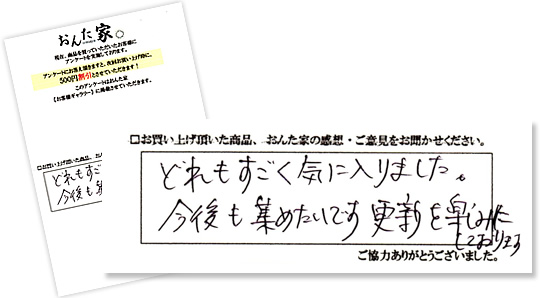 おんた家
現在、商品を買っていただいたお客様に
アンケートを実施しております。
アンケートにお答え頂きますと、次回お買い上げ時に、
500円割引とさせていただきます!
このアンケートはおんた家
【お客様ギャラリー】に掲載させていただきます。
□お買い上げ頂いた商品、おんた
どれもすご
今後も集め
□お買い上げ頂いた商品、おんた家の感想・ご意見をお聞かせください。
どれもすごく気に入りました。
今後も集めたいです 更新を楽しみに
しております
ご協力ありがとうございました。